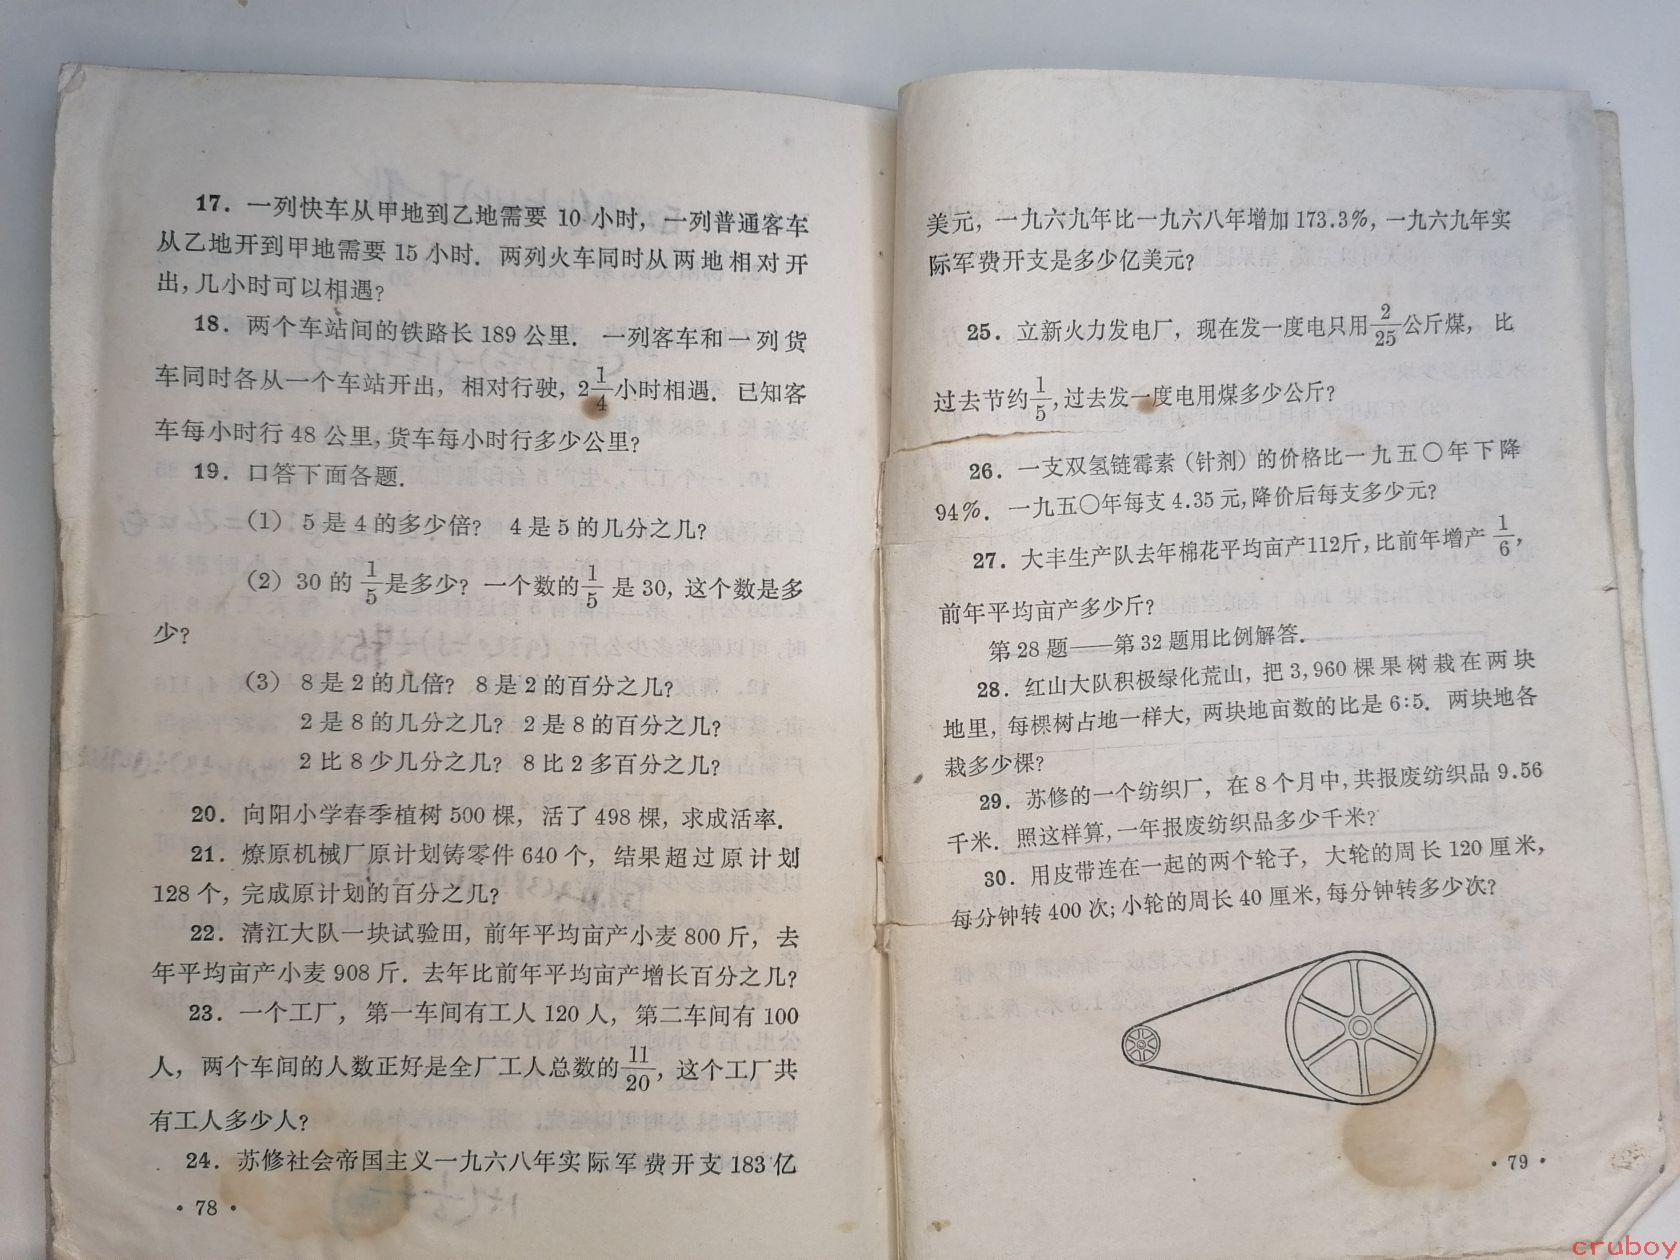 17. 一列快车从甲地到乙地需要 10 小时, 一列普通客车
从乙地开到甲地需要 15 小时. 两列火车同时从两地相对开
出, 几小时可以相遇?
18. 两个车站间的铁路长 189 公里. 一列客车和一列货
车同时各从一个车站开出, 相对行驶, 2 1/4 小时相遇. 已知客
车每小时行 48 公里, 货车每小时行多少公里?
19. 口答下面各题.
(1) 5 是 4 的多少倍? 4 是 5 的几分之几?
(2) 30 的 1/5 是多少? 一个数的 1/5 是 30, 这个数是多
少?
(3) 8 是 2 的几倍? 8 是 2 的百分之几?
2 是 8 的几分之几? 2 是 8 的百分之几?
2 比 8 少几分之几? 8 比 2 多百分之几?
20. 向阳小学春季植树 500 棵, 活了 498 棵, 求成活率.
21. 燎原机械厂原计划铸零件 640 个, 结果超过原计划
128 个, 完成原计划的百分之几?
22. 清江大队一块试验田, 前年平均亩产小麦 800 斤, 去
年平均亩产小麦 908 斤. 去年比前年平均亩产增长百分之几?
23. 一个工厂, 第一车间有工人 120 人, 第二车间有 100
人, 两个车间的人数正好是全厂工人总数的 11/20, 这个工厂共
有工人多少人?
24. 苏修社会帝国主义一九六八年实际军费开支 183 亿
· 78 ·
美元, 一九六九年比一九六八年增加 173.3%, 一九六九年实
际军费开支是多少亿美元?
25. 立新火力发电厂, 现在发一度电只用 2/25 公斤煤, 比
过去节约 1/5, 过去发一度电用煤多少公斤?
26. 一支双氢链霉素 (针剂) 的价格比一九五〇年下降
94%. 一九五〇年每支 4.35 元, 降价后每支多少元?
27. 大丰生产队去年棉花平均亩产112斤, 比前年增产 1/6,
前年平均亩产多少斤?
第 28 题——第 32 题用比例解答.
28. 红山大队积极绿化荒山, 把 3,960 棵果树栽在两块
地里, 每棵树占地一样大, 两块地亩数的比是 6:5. 两块地各
栽多少棵?
29. 苏修的一个纺织厂, 在 8 个月中, 共报废纺织品 9.56
千米. 照这样算, 一年报废纺织品多少千米?
30. 用皮带连在一起的两个轮子, 大轮的周长 120 厘米,
每分钟转 400 次; 小轮的周长 40 厘米, 每分钟转多少次?
· 79 ·
cruboy